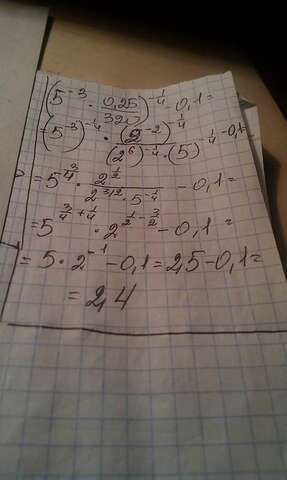 (5^{-3} · \frac{0,25}{320})^{-\frac{1}{4}} - 0,1 =
= (5^{-3})^{-\frac{1}{4}} · \frac{(2^{-2})^{-\frac{1}{4}}}{(2^{6})^{-\frac{1}{4}} · (5)^{-\frac{1}{4}}} - 0,1 =
= 5^{\frac{3}{4}} · \frac{2^{\frac{1}{2}}}{2^{-3/2} · 5^{-\frac{1}{4}}} - 0,1 =
= 5^{\frac{3}{4} + \frac{1}{4}} · 2^{\frac{1}{2} - \frac{3}{2}} - 0,1 =
= 5 · 2^{-1} - 0,1 = 2,5 - 0,1 =
= 2,4